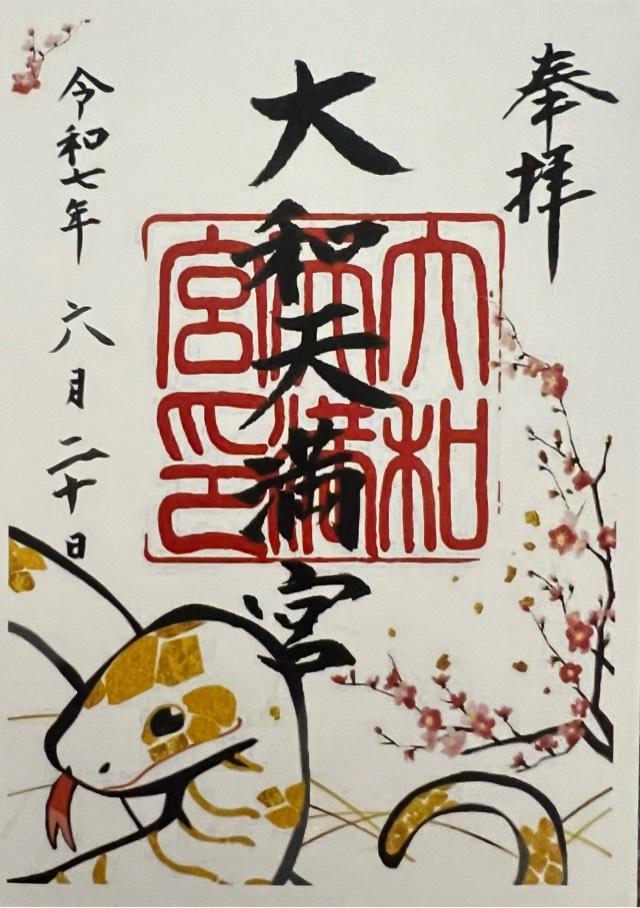 奉拝
大和天満宮
大和
天満
宮印
令和七年 六月二十日